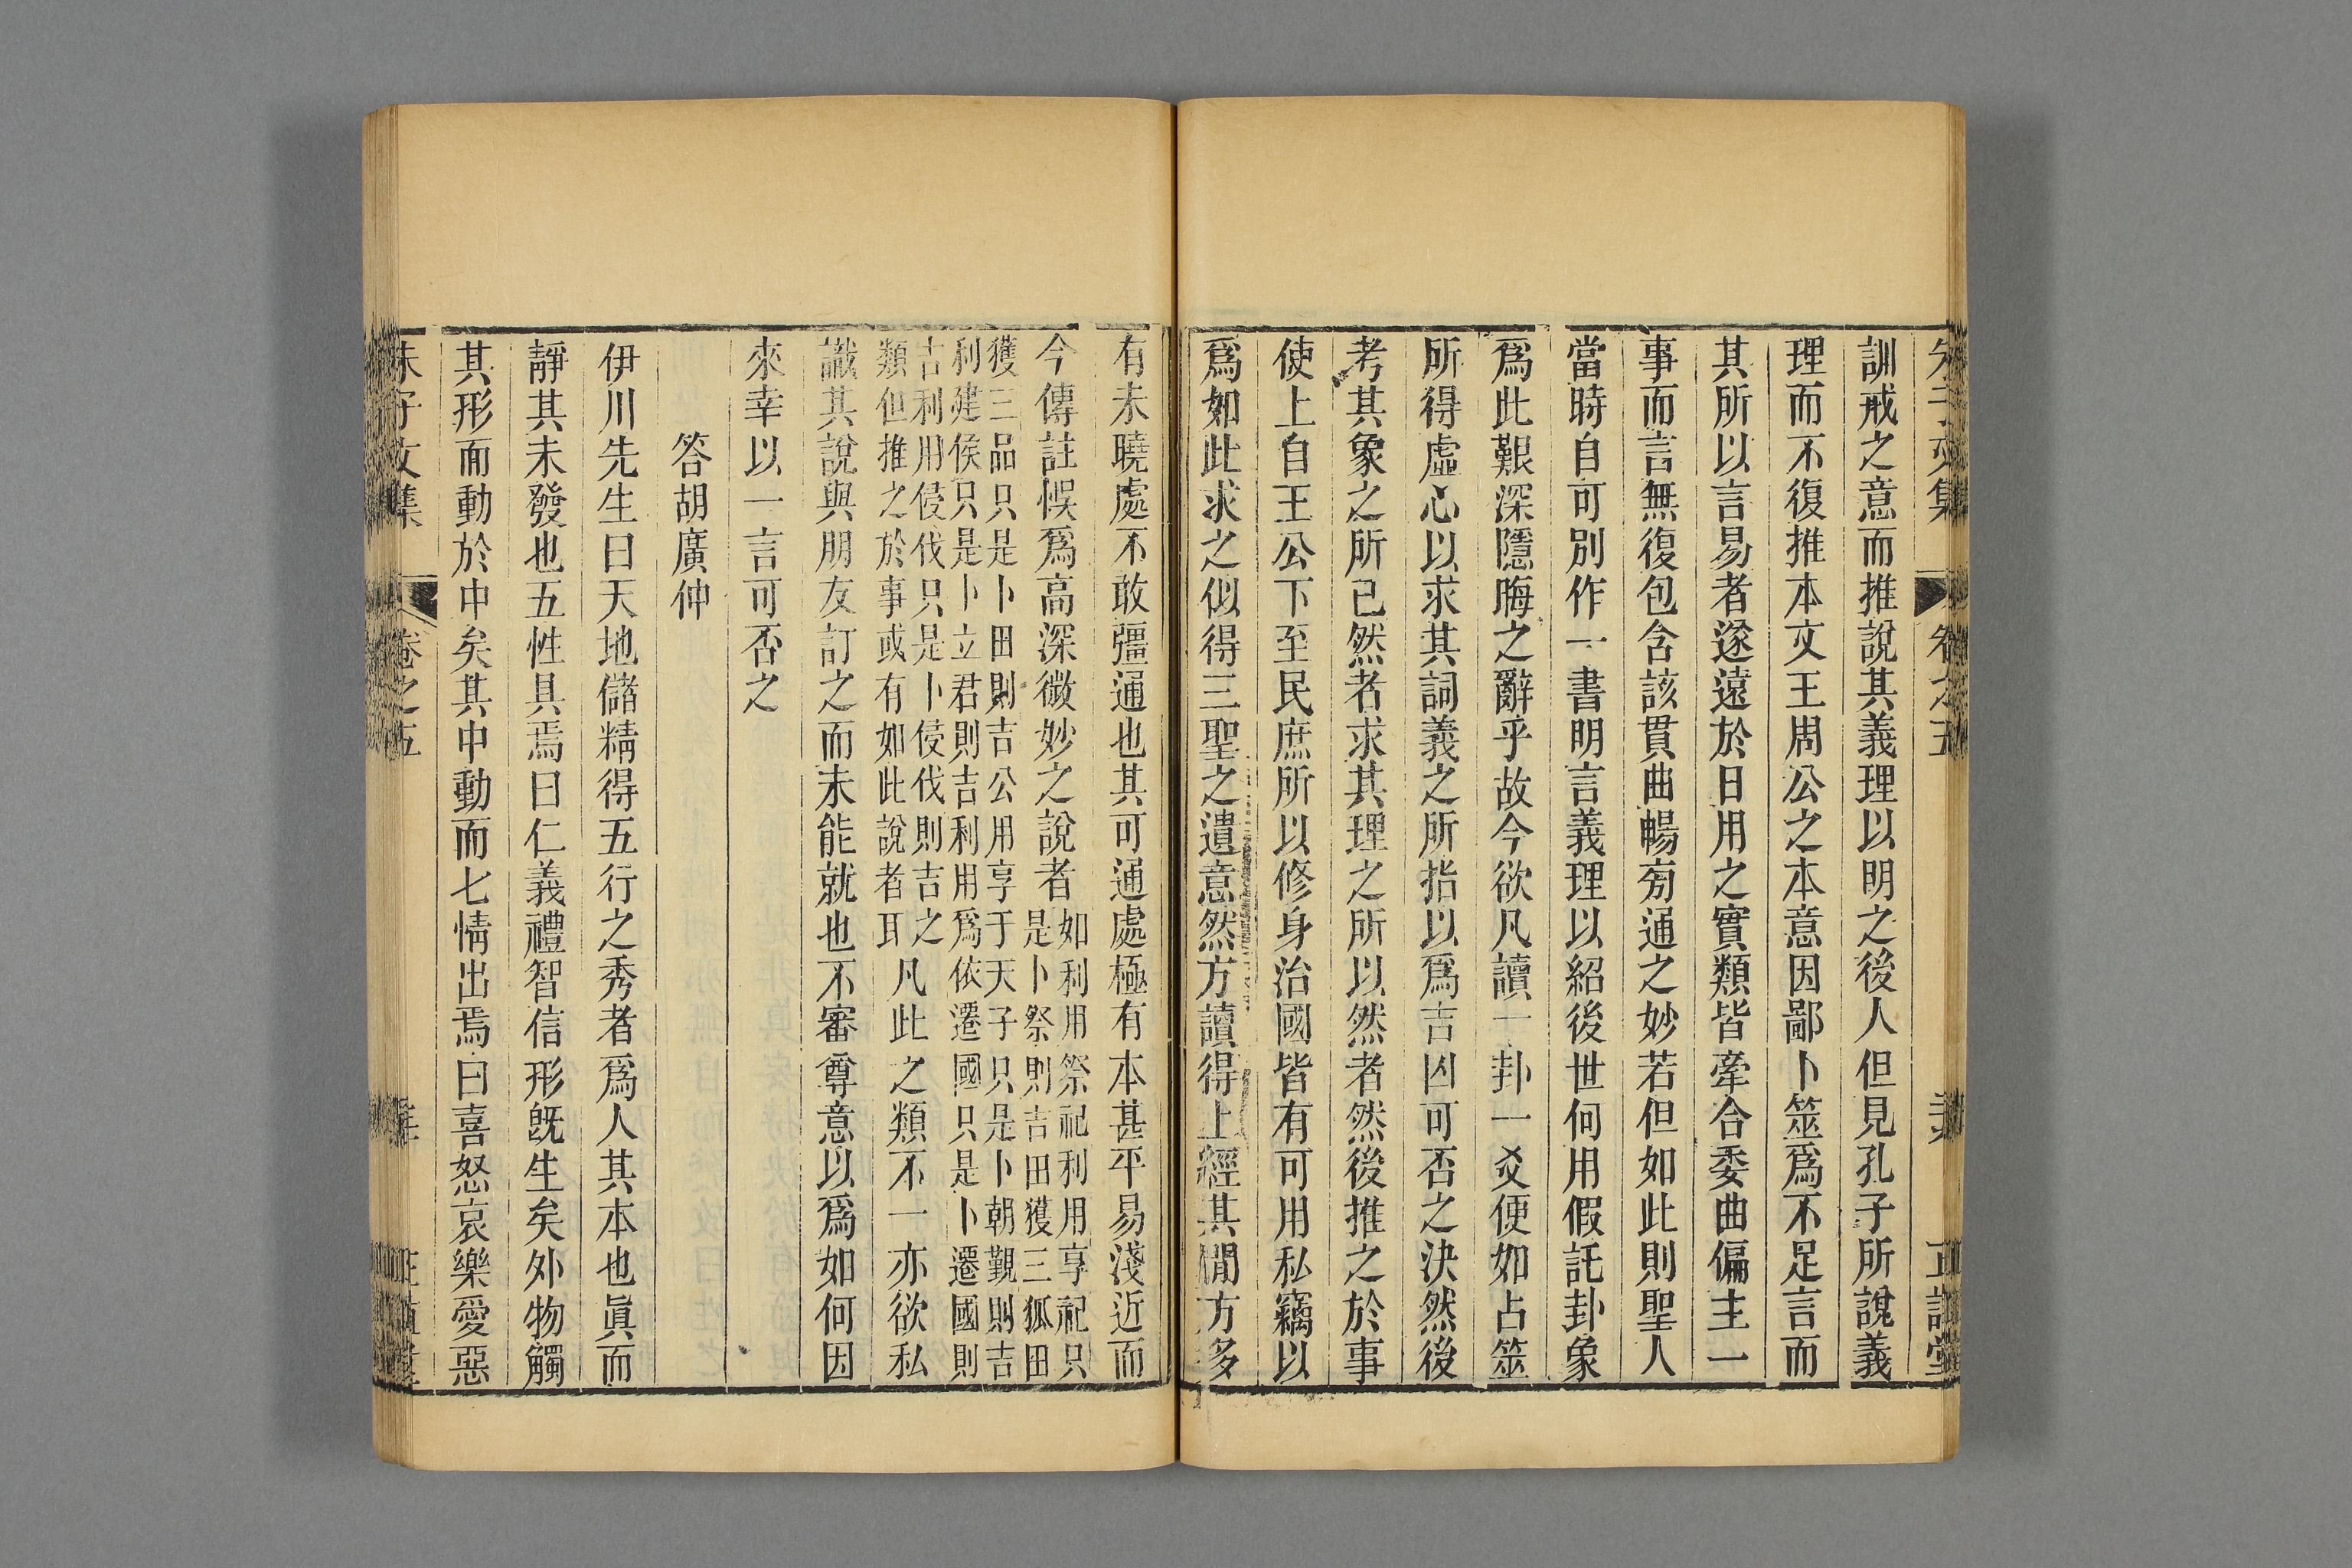 訓戒之意而推說其義理以明之後人但見孔子所說義
理而不復推本文王周公之本意因鄙卜筮爲不足言而
其所以言易者遂遠於日用之實類皆牽合委曲偏主一
事而言無復包含該貫曲暢旁通之妙若但如此則聖人
當時自可別作一書明言義理以紹後世何用假託卦象
爲此艱深隱晦之辭乎故今欲凡讀一卦一爻便如占筮
所得虛心以求其詞義之所指以爲吉凶可否之決然後
考其象之所已然者求其理之所以然者然後推之於事
使上自王公下至民庶所以修身治國皆有可用私竊以
爲如此求之似得三聖之遺意然方讀得上經其間方多
有未曉處不敢彊通也其可通處極有本甚平易淺近而
今傳註悞爲高深微妙之說者如利用祭祀利用享祀只
是卜祭則吉田獲三狐田
獲三品只是卜田則吉公用享于天子只是卜朝覲則吉
利建侯只是卜立君則吉利用爲依遷國只是卜遷國則
吉利用侵伐只是卜侵伐則吉之
類但推之於事或有如此說者耳凡此之類不一亦欲私
識其說與朋友訂之而未能就也不審尊意以爲如何因
來幸以一言可否之
答胡廣仲
伊川先生曰天地儲精得五行之秀者爲人其本也眞而
靜其未發也五性具焉曰仁義禮智信形旣生矣外物觸
其形而動於中矣其中動而七情出焉曰喜怒哀樂愛惡
朱子文集 卷之五